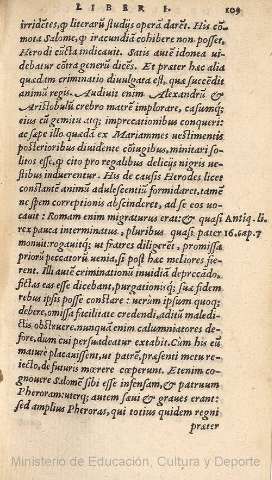 LIBER I. 109
irridētes, q̃ literarū studijs operā darēt. His cō-
mota Salome, q̃ iracundiā cohibere non posset,
Herodi cūcta indicauit. Satis autē idonea ui-
debatur cōtra generū dicēs. Et præter hac alia
quædam criminatio diuulgata est, quæ succēdit
animū regis. Audiuit enim Alexandrū &
Aristobulū crebro matrē implorare, casumq́;
eius cū gemitu atq; imprecationibus conqueri:
ac sæpe illo quædā ex Mariammes uestimentis
posterioribus diuidente cōiugibus, minitari so-
litos esse, q̃ cito pro regalibus delicijs nigris ue-
stibus induerentur. His de causis Herodes licet
constantē animū adulescentiū formidaret, tamē-
ne spem correptionis abscinderet, ad se eos uo-
cauit: Romam enim migraturus erat: & quasi Antiq. li.
rex pauca interminatus, pluribus quasi pater 16. cap. 7
monuit: rogauitq́; ut fratres diligerēt, promissa
priorū peccatorū uenia, si post hac meliores fie-
rent. Illi autē criminationū inuidiā deprecādo,
fictas eas esse dicebant, purgationisq́; suæ fidem
rebus ipsis posse constare: uerùm ipsum quoq;
debere, omissa facilitate credendi, aditū maledi-
ctis obstruere. nunquā enim calumniatores de-
fore, dum cui persuadeatur extabit. Cum his eū
maturè placauissent, ut patrē, præsenti metu re-
iecto, de futuris mœrere cœperunt. Etenim co-
gnouere Salomē sibi esse infensam, & patruum
Pheroram: uterq; autem sæui & graues erant:
sed amplius Pheroras, qui totius quidem regni
præter
Ministerio de Educación, Cultura y Deporte